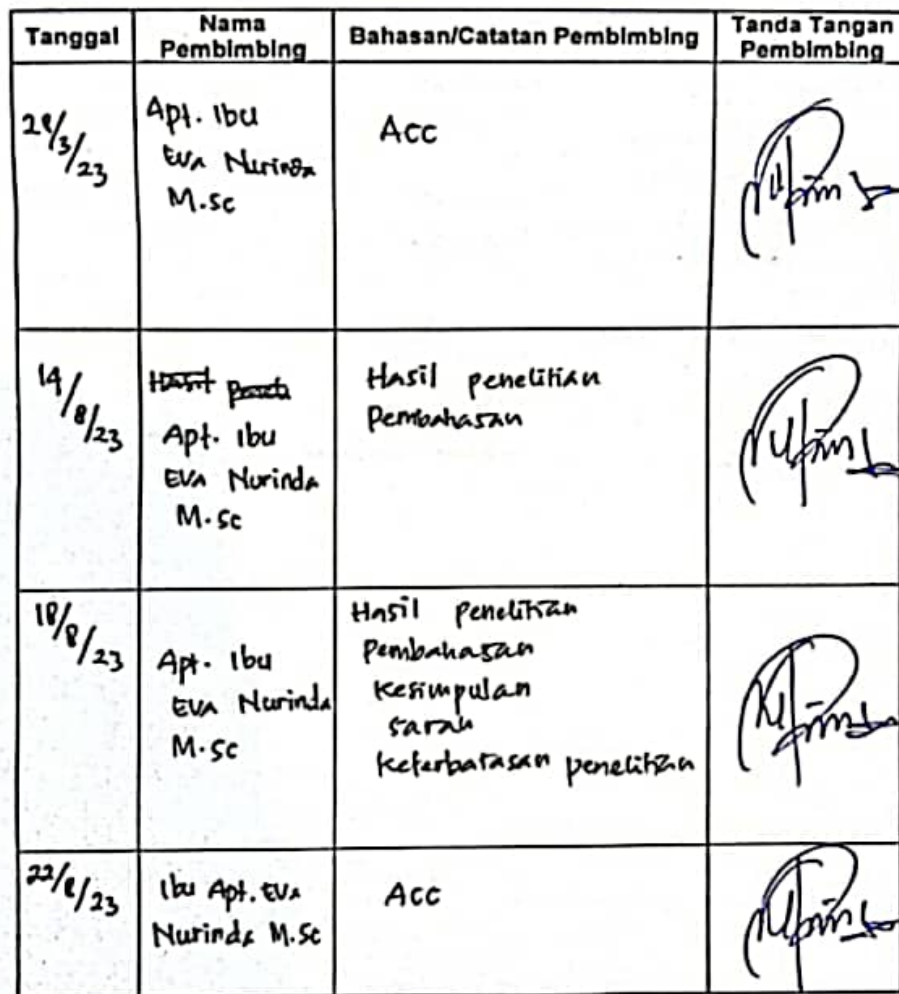 Tanggal
Nama
Pembimbing
Bahasan/Catatan Pembimbing
Tanda Tangan
Pembimbing
Apt. Ibu
Eva Nurinda
M.sc
Acc
14/8/23
Apt. Ibu
Eva Nurinda
M.sc
Hasil penelitian
Pembahasan
18/8/23
Apt. Ibu
Eva Nurinda
M.sc
Hasil penelitian
Pembahasan
Kesimpulan
saran
Keterbatasan penelitian
22/8/23
Ibu Apt. Eva
Nurinda M.sc
Acc